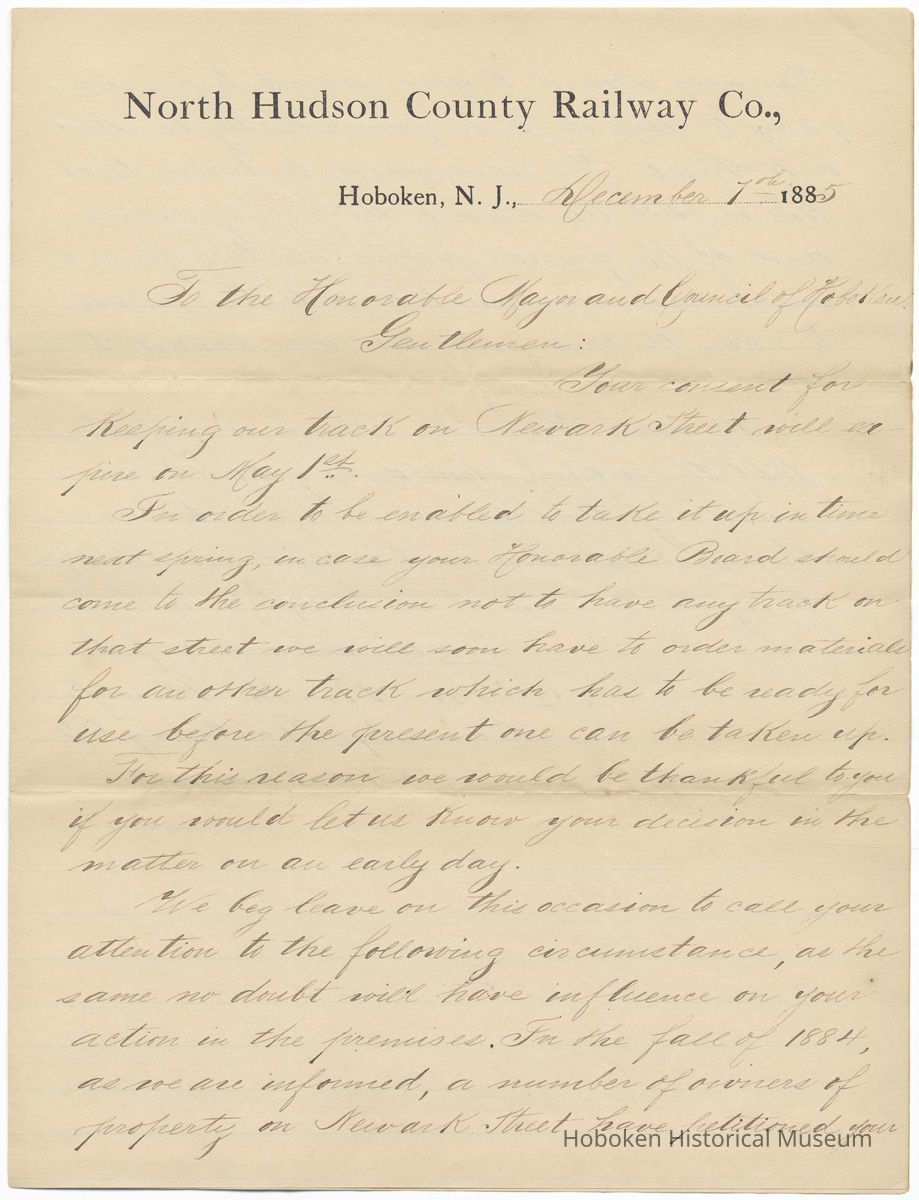 North Hudson County Railway Co.,
Hoboken, N. J., December 7th 1885
To the Honorable Mayor and Council of Hoboken.
Gentlemen:
Your consent for
keeping our track on Newark Street will ex-
pire on May 1st.
In order to be enabled to take it up in time
next spring, in case your Honorable Board should
come to the conclusion not to have any track on
that street we will soon have to order materials
for an other track which has to be ready for
use before the present one can be taken up.
For this reason we would be thankful to you
if you would let us know your decision in the
matter on an early day.
We beg leave on this occasion to call your
attention to the following circumstance, as the
same no doubt will have influence on your
action in the premises. In the fall of 1884,
as we are informed, a number of owners of
property on Newark Street have petitioned your
Hoboken Historical Museum